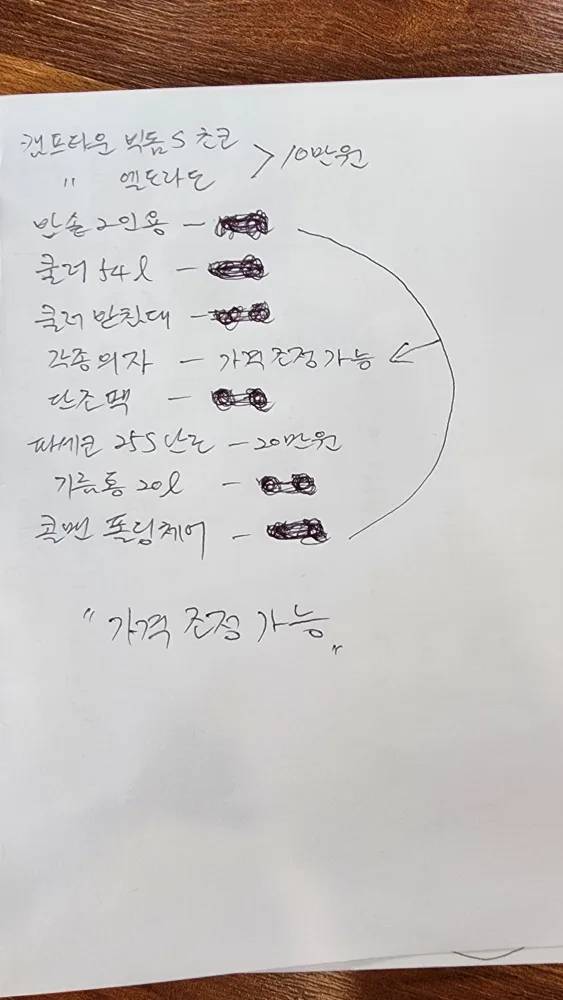 캠프타운 빅돔S 초코
〃 엘도라도 > 10만원
반솔 2인용 -
쿨러 54l -
쿨러 받침대 -
각종의자 - 가격조정가능
단조팩 -
파세코 25S 난로 - 20만원
기름통 20l -
콜맨 폴딩체어 -
"가격 조정 가능"